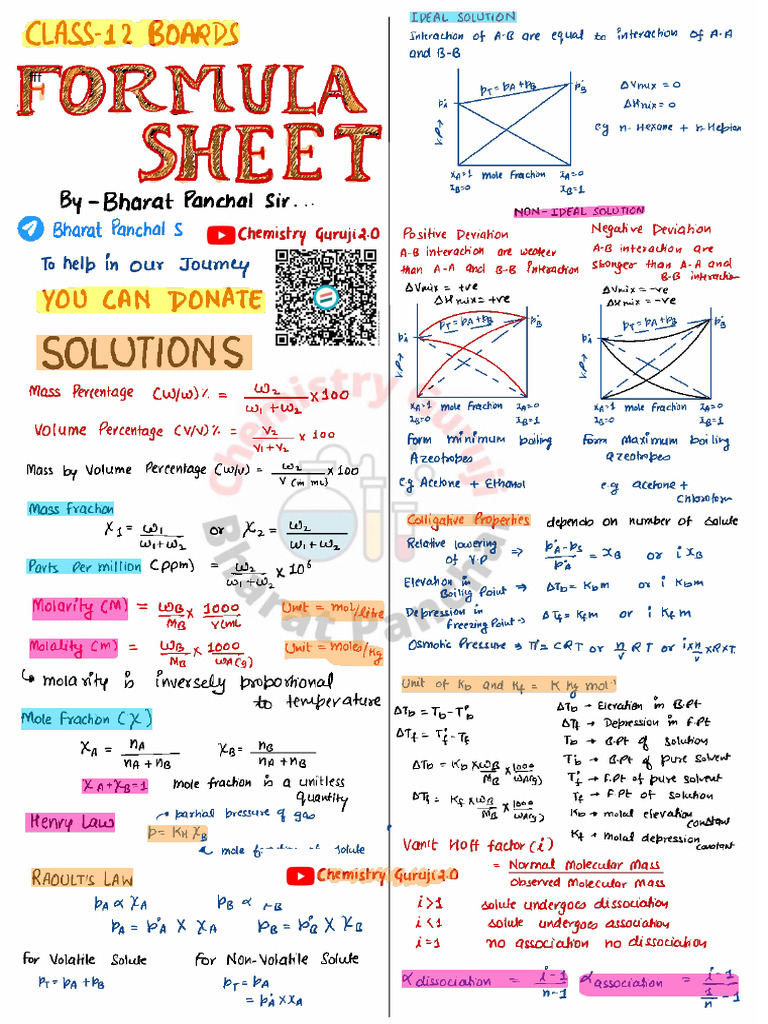 CLASS-12 BOARDS
FORMULA
SHEET
By - Bharat Panchal Sir...
Bharat Panchal S
Chemistry Guruji 2.0
To help in our Journey
YOU CAN DONATE
SOLUTIONS
Mass Percentage (w/w)% = w₂/(w₁+w₂) × 100
Volume Percentage (V/V)% = V₂/(V₁+V₂) × 100
Mass by Volume Percentage (w/v) = w₂/V(in mL) × 100
Mass fraction
χ₁ = w₁/(w₁+w₂) or χ₂ = w₂/(w₁+w₂)
Parts Per million (ppm) = w₂/(w₁+w₂) × 10⁶
Molarity (M) = wB/MB × 1000/V(mL) Unit = mol/litre
Molality (m) = wB/MB × 1000/wA(g) Unit = moles/kg
↳ molarity is inversely proportional
to temperature
Mole Fraction (χ)
χA = nA/(nA+nB) χB = nB/(nA+nB)
χA+χB=1 mole fraction is a unitless
quantity
partial pressure of gas
Henry Law p = KH χB
mole of solute
RAOULT'S LAW
Chemistry Guruji 2.0
pA ∝ χA pB ∝
pA = p°A × χA pB = p°B × χB
for Volatile Solute for Non-Volatile Solute
pT = pA + pB pT = pA
= p°A × χA
IDEAL SOLUTION
Interaction of A-B are equal to interaction of A-A
and B-B
pT = pA + pB
p°A
p°B
V.P→
ΔVmix = 0
ΔHmix = 0
eg n-Hexane + n-Heptan
χA=1 mole fraction χA=0
χB=0 χB=1
NON-IDEAL SOLUTION
Positive Deviation
A-B interaction are weaker
than A-A and B-B interaction
ΔVmix = +ve
ΔHmix = +ve
pT = pA + pB
p°A
p°B
V.P→
χA=1 mole fraction χA=0
χB=0 χB=1
Form minimum boiling
Azeotropes
eg Acetone + Ethanol
Negative Deviation
A-B interaction are
stronger than A-A and
B-B interaction
ΔVmix = -ve
ΔHmix = -ve
pT = pA + pB
p°A
p°B
V.P→
χA=1 mole fraction χA=0
χB=0 χB=1
Form Maximum boiling
azeotropes
e.g acetone +
Chloroform
Colligative Properties depends on number of solute
Relative lowering
of V.P ⇒ (p°A - ps)/p°A = χB or i χB
Elevation in
Boiling Point ⇒ ΔTb = Kb m or i Kb m
Depression in
freezing Point ⇒ ΔTf = Kf m or i Kf m
Osmotic Pressure ⇒ π = CRT or n/V RT or i × n/V × R × T
Unit of Kb and Kf = K kg mol⁻¹
ΔTb = Tb - T°b
ΔTf = T°f - Tf
ΔTb = Kb × wB/MB × 1000/wA(g)
ΔTf = Kf × wB/MB × 1000/wA(g)
ΔTb → Elevation in B.Pt
ΔTf → Depression in F.Pt
Tb → B.Pt of solution
T°b → B.Pt of pure solvent
T°f → F.Pt of pure solvent
Tf → F.Pt of solution
Kb → molal elevation
constant
Kf → molal depression
constant
Vanit Hoff factor (i)
= Normal Molecular Mass / Observed Molecular Mass
i>1 solute undergoes dissociation
i<1 solute undergoes association
i=1 no association no dissociation
α dissociation = (i-1)/(n-1) α association = (i-1)/(1/n - 1)
Chemistry Guruji
Bharat Panchal